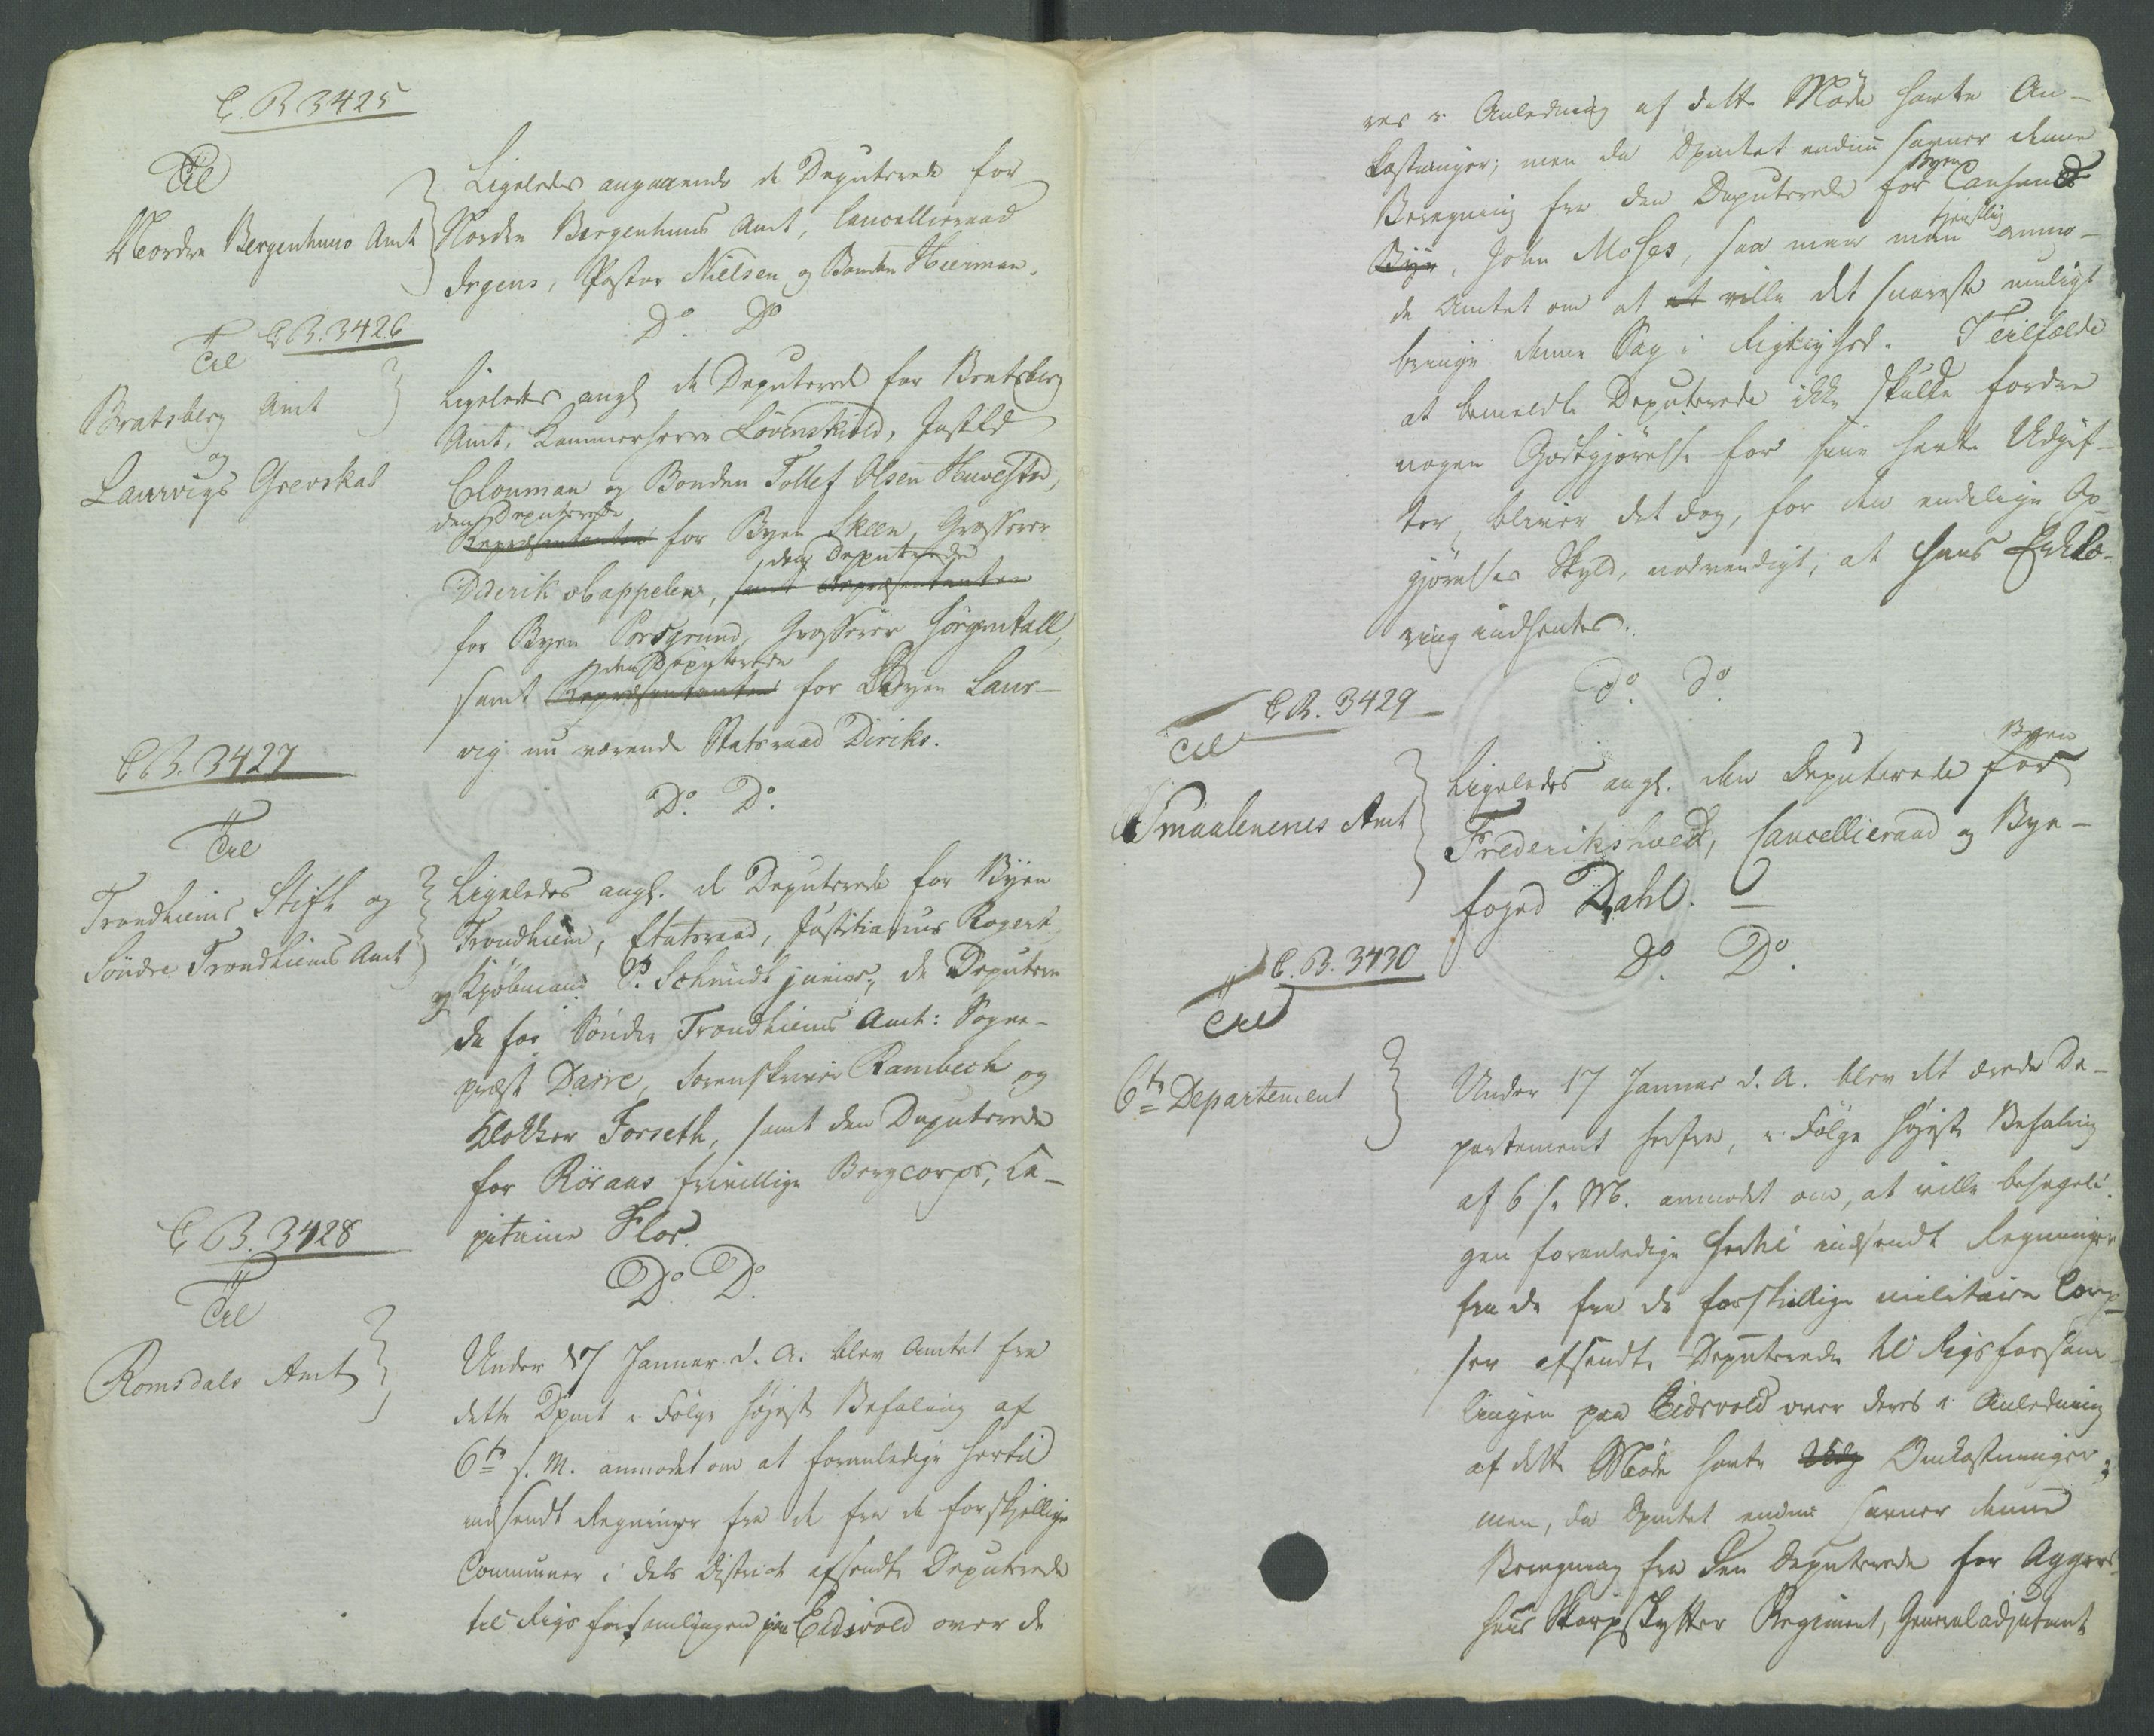 C. B 3425
Til
Nordre Bergenhuus Amt
Ligeledes angaaende de Deputerede for
Nordre Bergenhuus Amt, Cancellieraad
Irgens, Pastor Nielsen og Bonden Hierman.
Do. Do
C. B. 3426
Til
Bratsberg Amt
og
Laurvigs Grevskab
Ligeledes angl. de Deputerede for Bratsberg
Amt, Kammerherre Lövenskiold, Justrd
Cloumann og Bonden Tollef Olsen Huvestad,
den Deputerede
Repræsentanten for Byen Skeen, Grosserer
Diderik v Cappelen, den Deputerede
samt Repræsentanten
for Byen Porsgrund, Grosserer Jörgen Aall,
den Deputerede
samt Repræsentanten for Byen Laur-
vig nu værende Statsraad Diriks.
Do. Do.
C. B. 3427
Til
Trondhiems Stift og
Söndre Trondhiems Amt
Ligeledes angl. de Deputerede for Byen
Trondhiem, Etatsraad, Justitiarius Rogert
og Kjöbmand P. Schmidt junior, de Deputere
de for Söndre Trondhiems Amt: Sogne-
præst Darre, Sorenskriver Rambech og
Klokker Forseth, samt den Deputerede
for Röraas frivillige Bergcorps, Ca-
pitaine Flor.
Do. Do.
C. B. 3428
Til
Romsdals Amt
Under 17 Januar d. A. blev Amtet fra
dette Dpmt i Fölge höjeste Befaling af
6te s. M. anmodet om at foranledige hertil
indsendt Regninger fra de fra de forskjellige
Communer i dets District afsendte Deputerede
til Rigsforsamlingen paa Eidsvold over de
res i Anledning af dette Möde havte Om-
kostninger; men da Dpmtet endnu savner denne
Beregning fra den Deputerede for Byen Cansund
Bye, John Moses, saa maa man tjenstlig anmo-
de Amtet om at at ville det snareste muligt
bringe denne Sag i Rigtighed. I Tilfælde
at bemeldte Deputerede ikke skulde fordre
nogen Godtgjörelse for sine havte Udgif-
ter, bliver det dog, for den endelige Op-
gjörelses Skyld, nödvendigt, at hans Erklæ-
ring indhentes.
Do. Do.
C. B. 3429
Til
Smaalenenes Amt
Ligeledes angl. den Deputerede for Byen
Frederikshald, Cancellieraad og Bye-
foged Dahl.
Do. Do.
C. B. 3430
Til
6te Departement
Under 17 Januar d. A. blev det ærede De-
partement herfra, i Fölge höjeste Befaling
af 6 s. M. anmodet om, at ville behageli-
gen foranledige hertil indsendt Regninger
fra de fra de forskjellige militaire Corp-
ser afsendte Deputerede til Rigsforsam-
lingen paa Eidsvold over deres i Anledning
af dette Möde havte Udg Omkostninger;
men, da Dpmtet endnu savner denne
Beregning fra den Deputerede for Aggers-
huus Skarpskytter Regiment, Generaladjutant